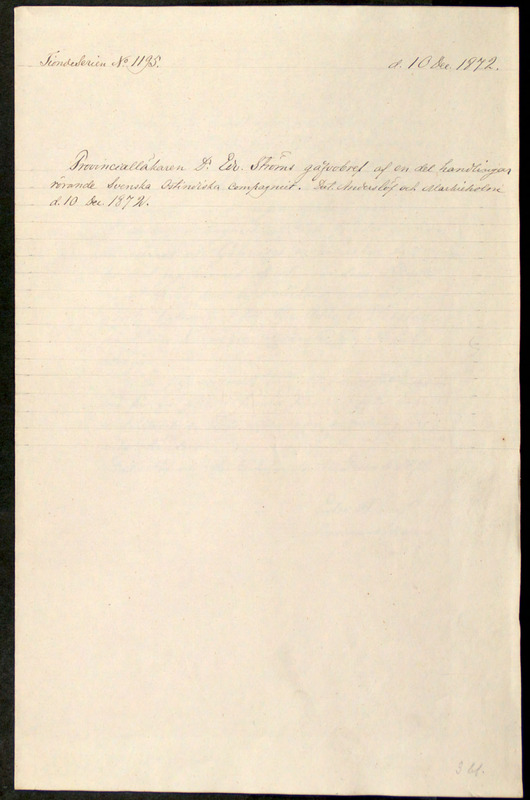 Tionde Serien No 1195.
d. 10 Dec. 1872.
Provincialläkaren Dr Edv. gåfvobref af en del handlingar
rörande Svenska Ostindiska Compagniet. Dat. Anderslöf och
d. 10 Dec. 1872.
3 bl.